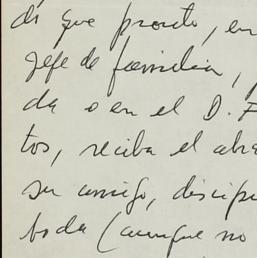 di que pronto, en
jefe de familia,
da o en el D. F
tos, reciba el abra
su amigo, discípu
boda (aunque no